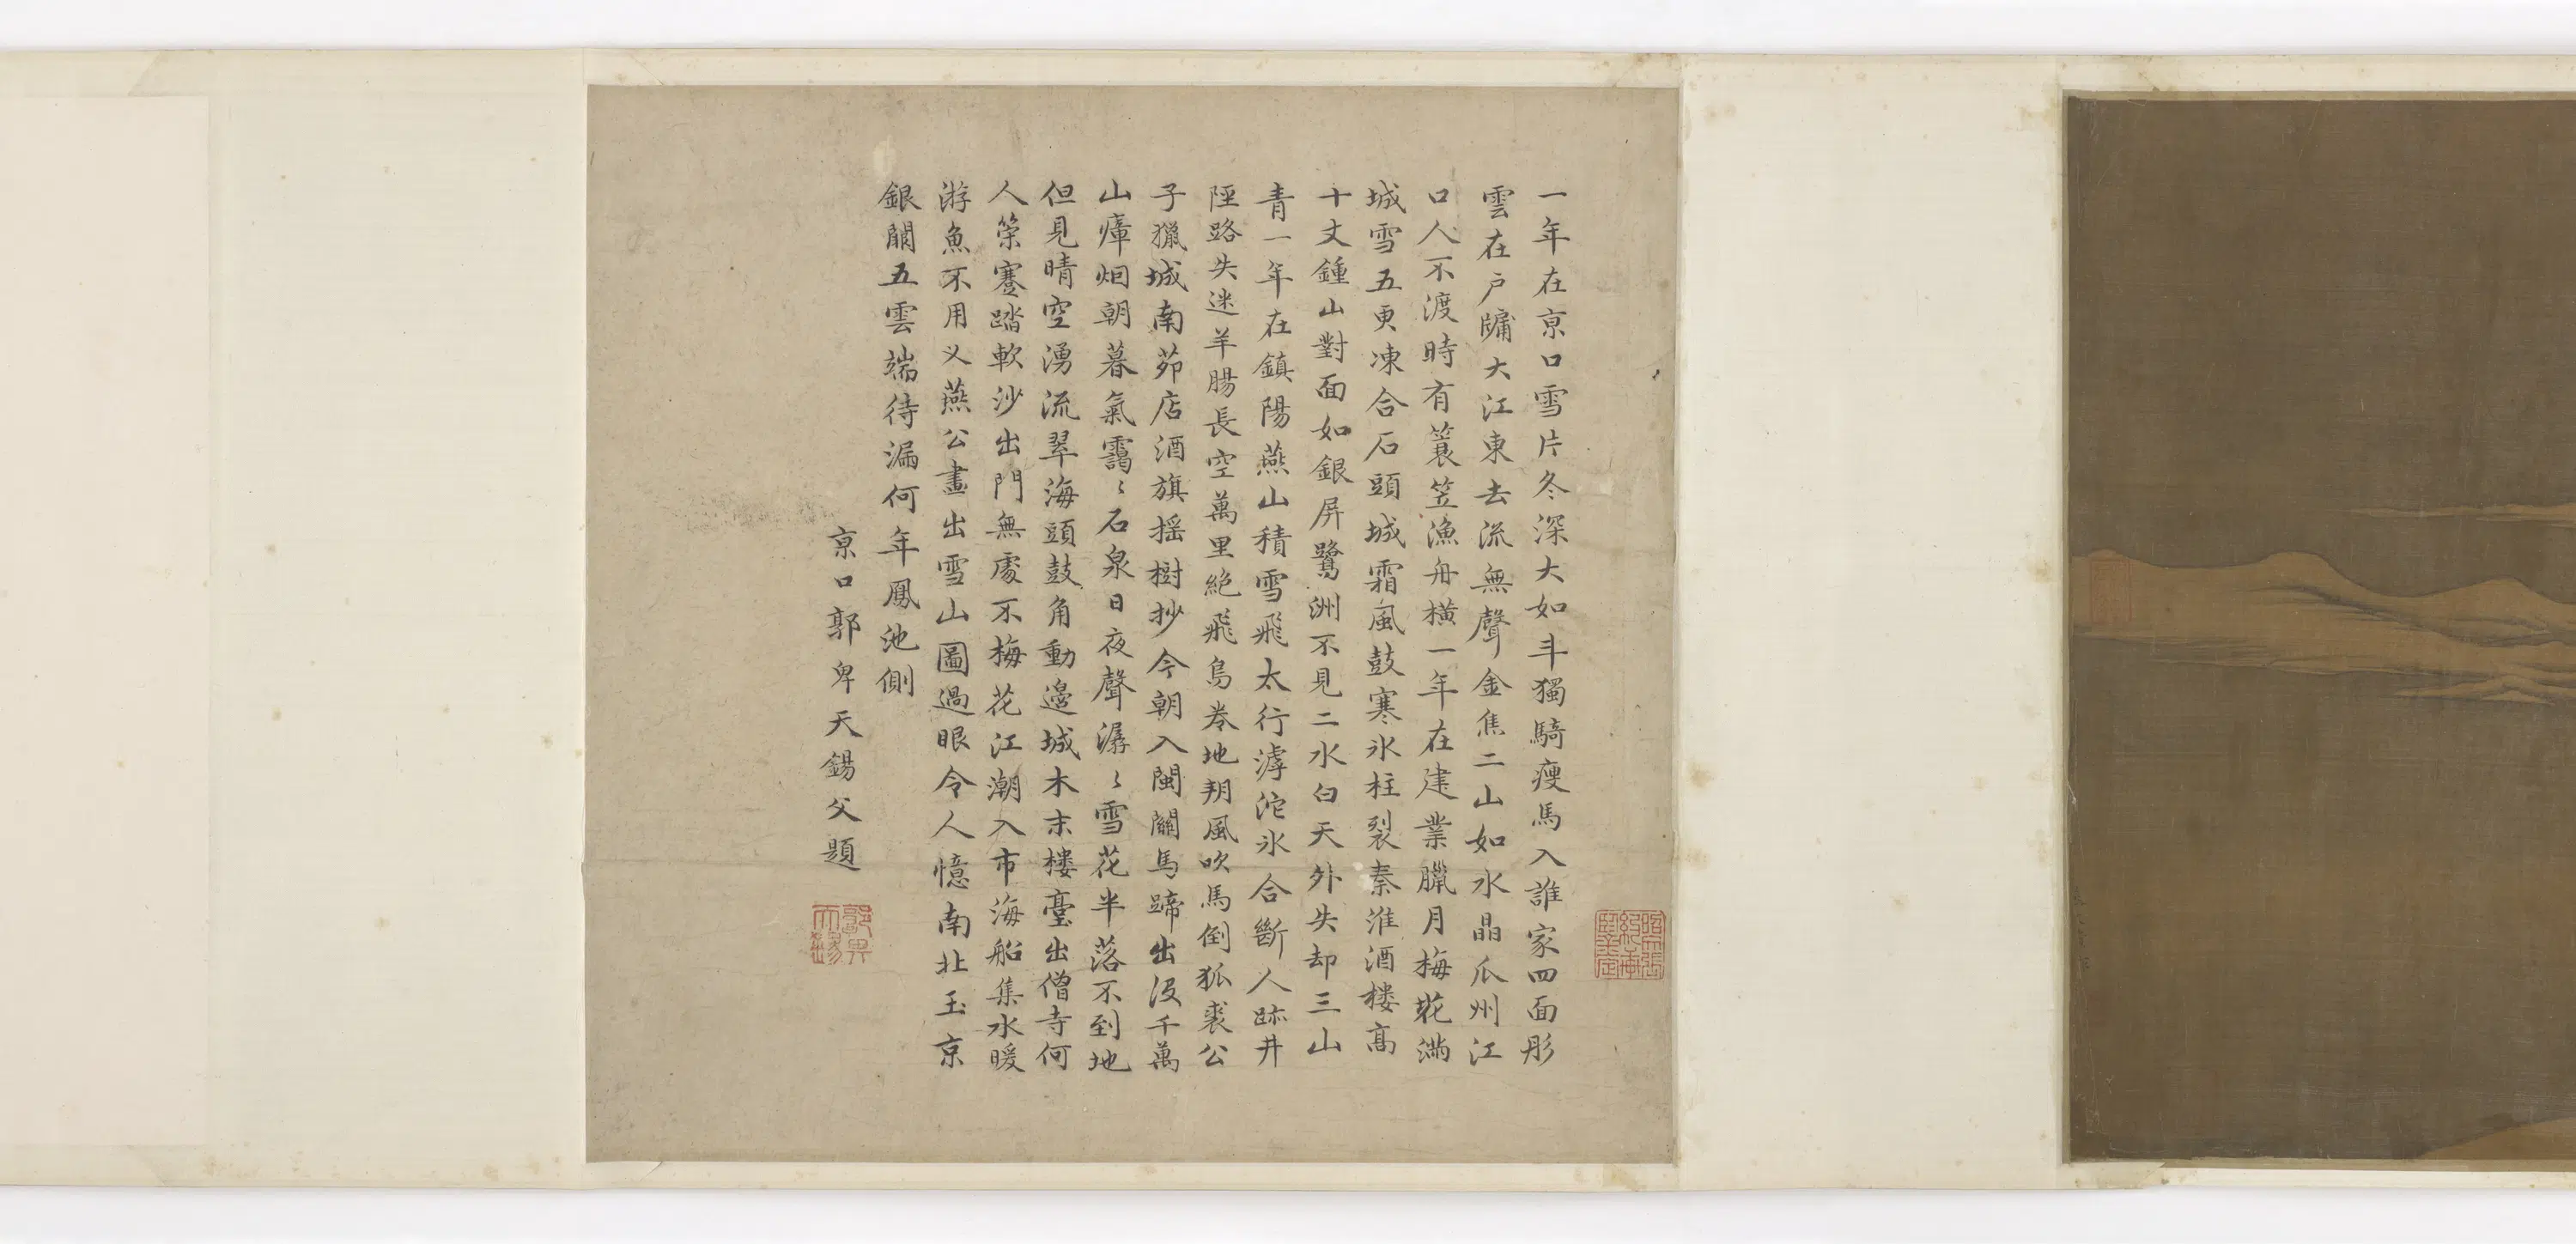 一年在京口雪片冬深大如斗獨騎瘦馬入誰家四面彤
雲在戶牖大江東去流無聲金焦二山如水晶瓜州江
口人不渡時有蓑笠漁舟橫一年在建業臘月梅花滿
城雪五更凍合石頭城霜風鼓寒氷柱裂秦淮酒樓高
十丈鍾山對面如銀屏鷺洲不見二水白天外失却三山
青一年在鎮陽燕山積雪飛太行滹沱氷合斷人跡井
陘路失迷羊腸長空萬里絕飛鳥卷地朔風吹馬倒狐裘公
子獵城南茆店酒旗搖樹抄今朝入閩關馬蹄出沒千萬
山瘴烟朝暮氣靄〻石泉日夜聲潺〻雪花半落不到地
但見晴空湧流翠海頭鼓角動邊城木末樓臺出僧寺何
人策蹇踏軟沙出門無處不梅花江潮入市海船集水暖
游魚不用义燕公畫出雪山圖過眼令人憶南北玉京
銀闕五雲端待漏何年鳳池側
京口郭畀天錫父題
郭畀天錫